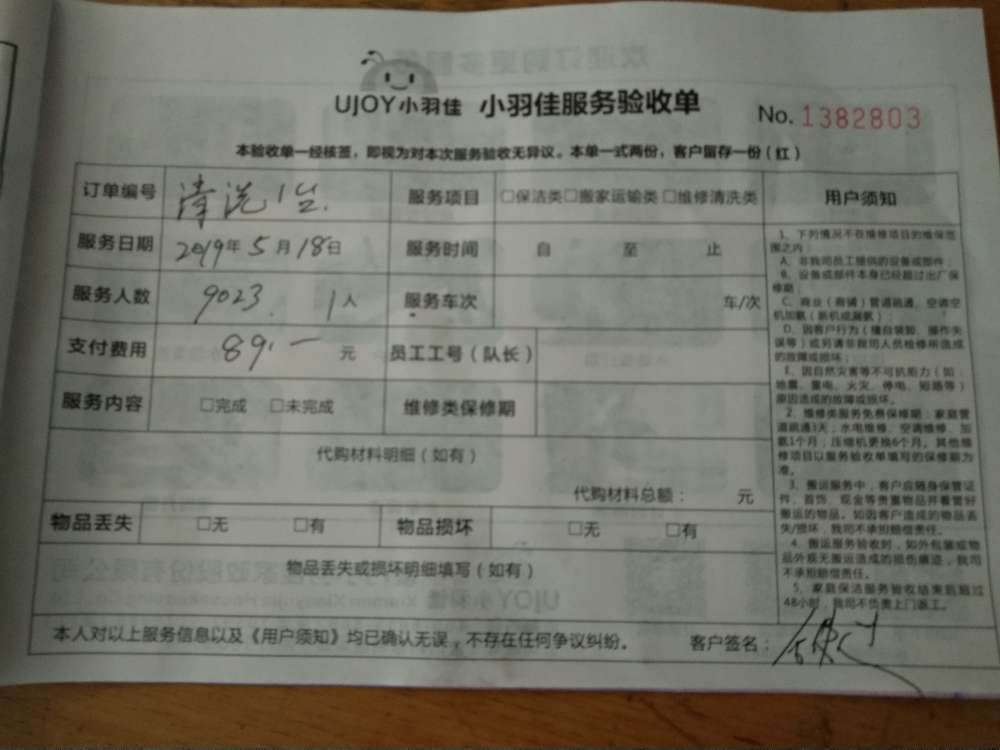 UJOY小羽佳 小羽佳服务验收单 No. 1382803
本验收单一经核签，即视为对本次服务验收无异议。本单一式两份，客户留存一份（红）
订单编号 清洗1台. 服务项目 □保洁类□搬家运输类 □维修清洗类
服务日期 2019年5月18日 服务时间 自 至 止
服务人数 9023. 1人 服务车次 车/次
支付费用 89.一 元 员工工号（队长）
服务内容 □完成 □未完成 维修类保修期
代购材料明细（如有）
代购材料总额： 元
物品丢失 □无 □有 物品损坏 □无 □有
物品丢失或损坏明细填写（如有）
本人对以上服务信息以及《用户须知》均已确认无误，不存在任何争议纠纷。 客户签名：
用户须知
1、下列情况不在维修项目的维保范
围之内：
A、非我司员工提供的设备或部件；
B、设备或部件本身已经超过出厂保
修期；
C、商业（商铺）管道疏通、空调空
机加氨（新机或漏氨）；
D、因客户行为（擅自装卸、操作失
误等）或另请非我司人员检修所造成
的故障或损坏；
E、因自然灾害等不可抗力（如：
地震、雷电、火灾、停电、短路等）
原因造成的故障或损坏。
2、维修类服务免费保修期：家庭管
道疏通3天；水电维修、空调维修、加
氨1个月；压缩机更换6个月。其他维
修项目以服务验收单填写的保修期为
准。
3、搬运服务中，客户应随身保管证
件、首饰、现金等贵重物品并看管好
搬运的物品。如因客户造成的物品丢
失/损坏，我司不承担赔偿责任。
4、搬运服务验收时，如外包装或物
品外观无搬运造成的损伤痕迹，我司
不承担赔偿责任。
5、家庭保洁服务验收结束后超过
48小时，我司不负责上门返工。